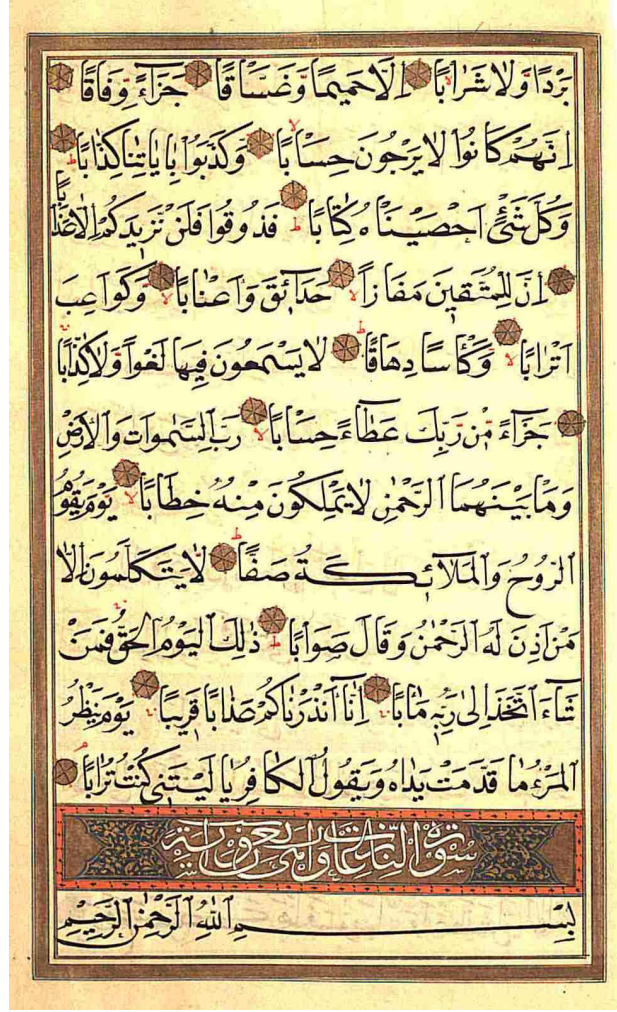 بَرْدًا وَلَا شَرَابًا اِلَّا حَمِيمًا وَغَسَّاقًا جَزَاءً وِفَاقًا
اِنَّهُمْ كَانُوا لَا يَرْجُونَ حِسَابًا وَكَذَّبُوا بِاٰيَاتِنَا كِذَّابًا
وَكُلَّ شَيْءٍ اَحْصَيْنَاهُ كِتَابًا فَذُوقُوا فَلَنْ نَزِيدَكُمْ اِلَّا عَذَابًا
اِنَّ لِلْمُتَّقِينَ مَفَازًا حَدَائِقَ وَاَعْنَابًا وَكَوَاعِبَ
اَتْرَابًا وَكَأْسًا دِهَاقًا لَا يَسْمَعُونَ فِيهَا لَغْوًا وَلَا كِذَّابًا
جَزَاءً مِنْ رَبِّكَ عَطَاءً حِسَابًا رَبِّ السَّمٰوَاتِ وَالْاَرْضِ
وَمَا بَيْنَهُمَا الرَّحْمٰنِ لَا يَمْلِكُونَ مِنْهُ خِطَابًا يَوْمَ يَقُومُ
الرُّوحُ وَالْمَلَائِكَةُ صَفًّا لَا يَتَكَلَّمُونَ اِلَّا
مَنْ اَذِنَ لَهُ الرَّحْمٰنُ وَقَالَ صَوَابًا ذٰلِكَ الْيَوْمُ الْحَقُّ فَمَنْ
شَاءَ اتَّخَذَ اِلٰى رَبِّهِ مَاٰبًا اِنَّا اَنْذَرْنَاكُمْ عَذَابًا قَرِيبًا يَوْمَ يَنْظُرُ
الْمَرْءُ مَا قَدَّمَتْ يَدَاهُ وَيَقُولُ الْكَافِرُ يَا لَيْتَنِي كُنْتُ تُرَابًا
سورة النازعات واهى اربعون اية
بِسْمِ اللّٰهِ الرَّحْمٰنِ الرَّحِيمِ